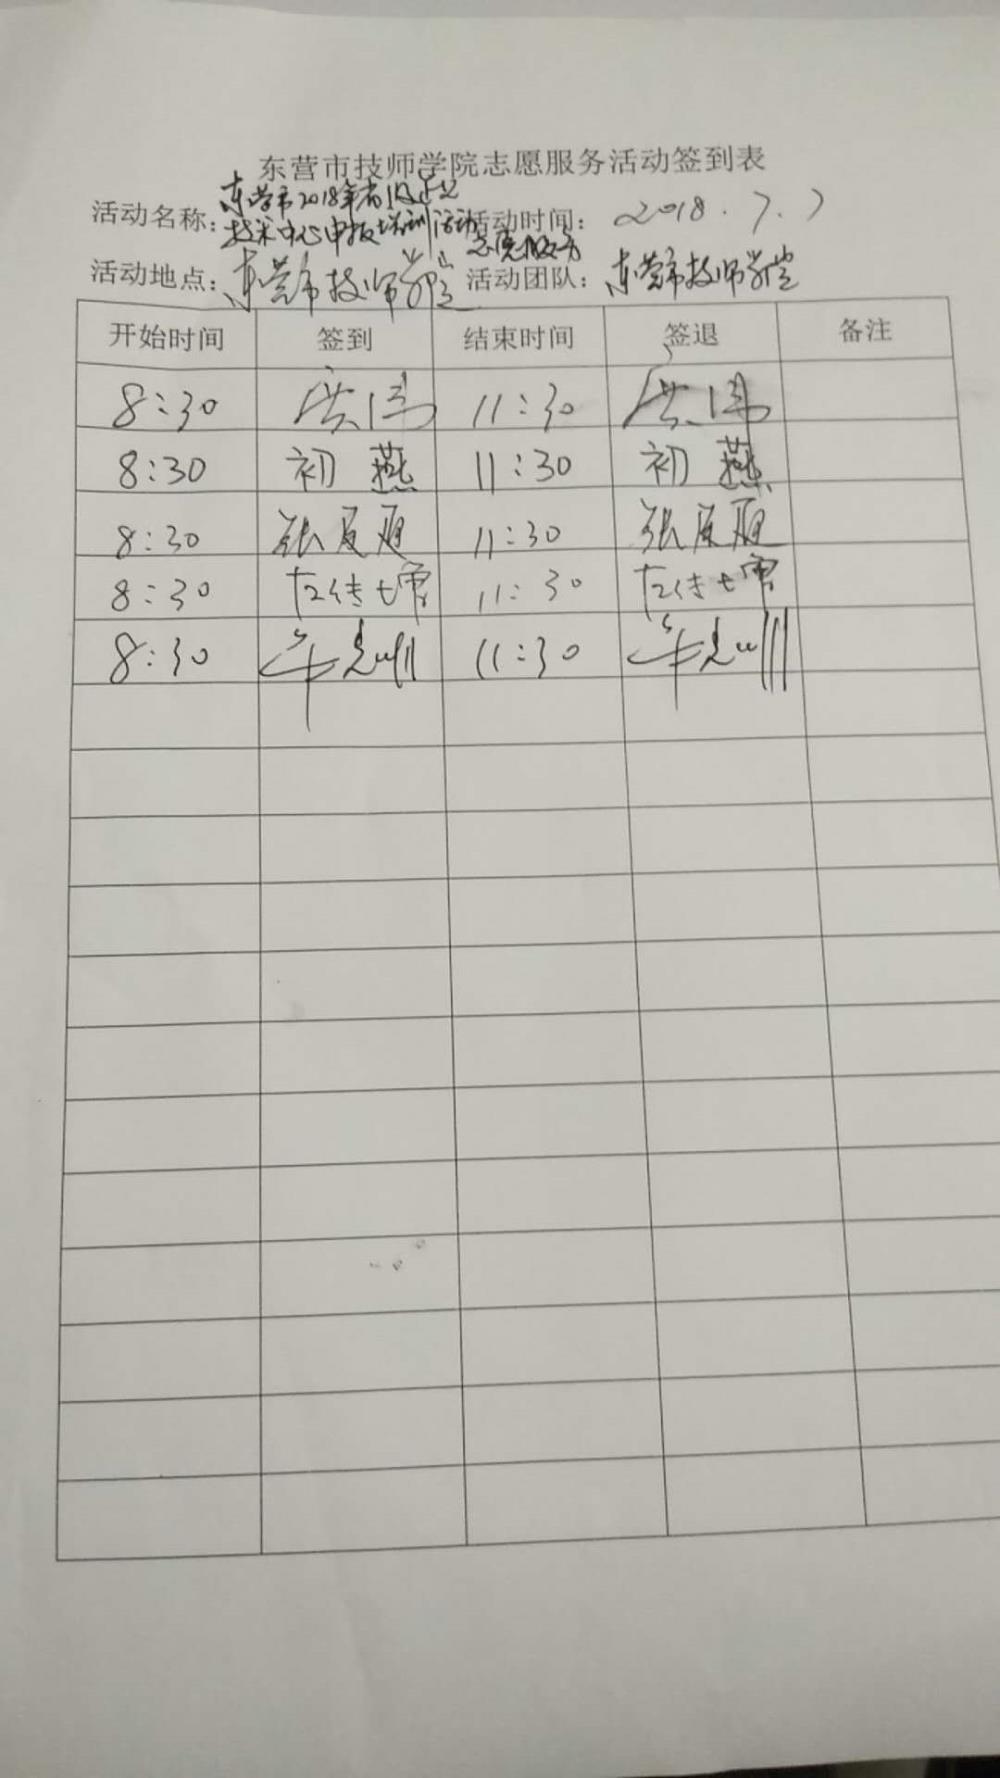 东营市技师学院志愿服务活动签到表
活动名称：东营市2018年省级企业技术中心申报培训活动志愿服务 活动时间：2018.7.7
活动地点：东营市技师学院 活动团队：东营市技师学院
开始时间 签到 结束时间 签退 备注
8:30 洪伟 11:30 洪伟
8:30 初燕 11:30 初燕
8:30 张 11:30 张
8:30 11:30
8:30 11:30